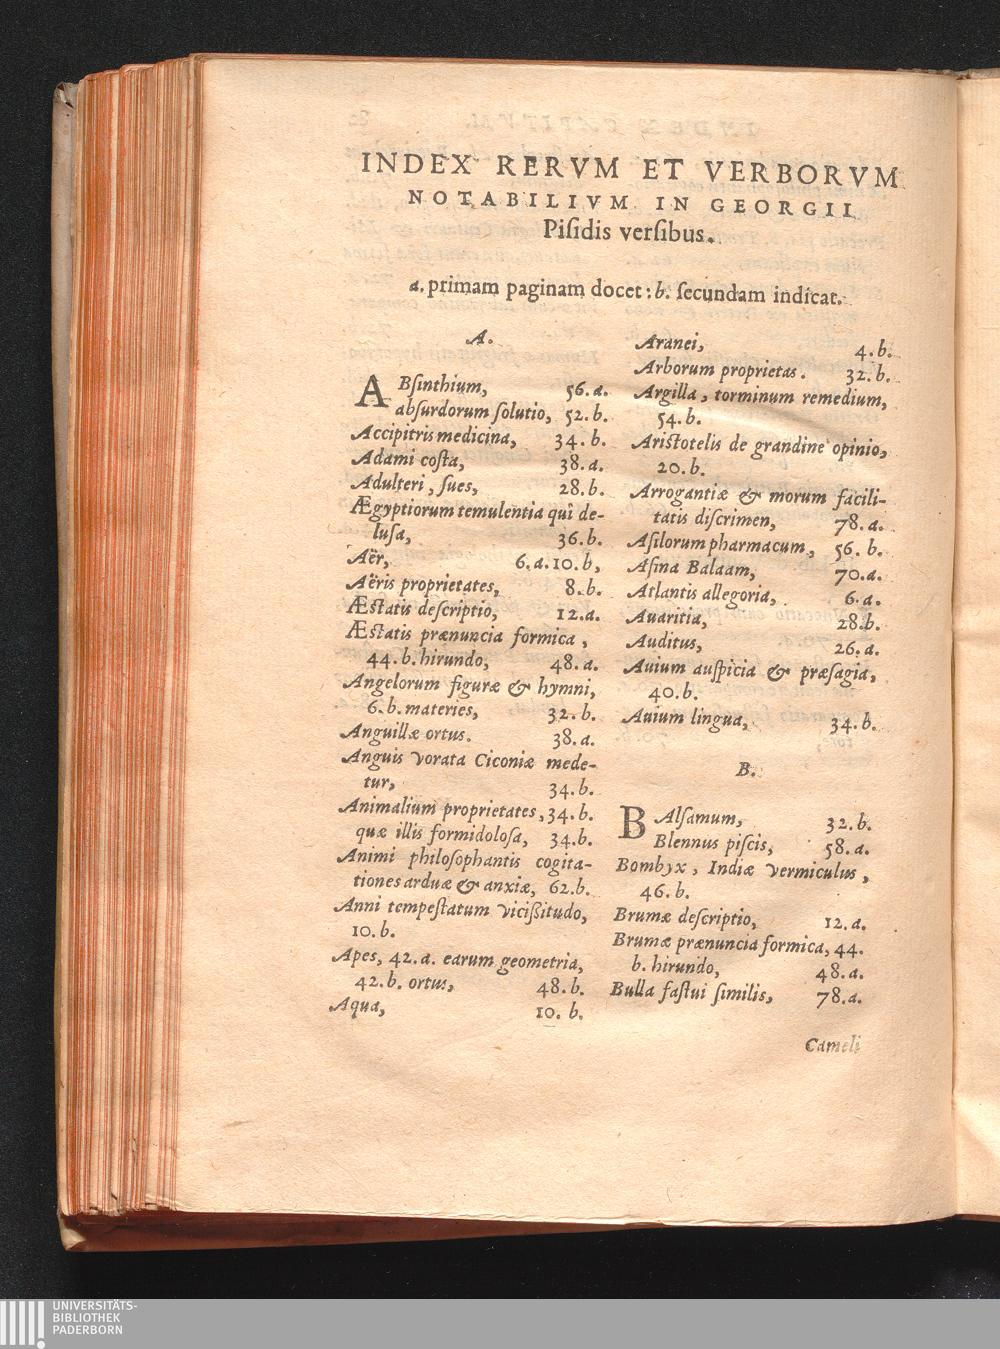 INDEX RERVM ET VERBORVM
NOTABILIVM IN GEORGII
Piſidis verſibus.
a. primam paginam docet: b. ſecundam indicat.
A.
ABſinthium, 56. a.
abſurdorum ſolutio, 52. b.
Accipitris medicina, 34. b.
Adami coſta, 38. a.
Adulteri, ſues, 28. b.
Ægyptiorum temulentia quî de-
luſa, 36. b.
Aër, 6. a. 10. b,
Aëris proprietates, 8. b.
Æſtatis deſcriptio, 12. a.
Æſtatis prænuncia formica,
44. b. hirundo, 48. a.
Angelorum figuræ & hymni,
6. b. materies, 32. b.
Anguillæ ortus. 38. a.
Anguis vorata Ciconiæ mede-
tur, 34. b.
Animalium proprietates, 34. b.
quæ illis formidoloſa, 34. b.
Animi philoſophantis cogita-
tiones arduæ & anxiæ, 62. b.
Anni tempeſtatum viciſsitudo,
10. b.
Apes, 42. a. earum geometria,
42. b. ortus, 48. b.
Aqua, 10. b.
Aranei, 4. b.
Arborum proprietas. 32. b.
Argilla, torminum remedium,
54. b.
Ariſtotelis de grandine opinio,
20. b.
Arrogantiæ & morum facili-
tatis diſcrimen, 78. a.
Aſilorum pharmacum, 56. b.
Aſina Balaam, 70. a.
Atlantis allegoria, 6. a.
Auaritia, 28. b.
Auditus, 26. a.
Auium auſpicia & præſagia,
40. b.
Auium lingua, 34. b.
B.
BAlſamum, 32. b.
Blennus piſcis, 58. a.
Bombyx, Indiæ vermiculus,
46. b.
Brumæ deſcriptio, 12. a.
Brumæ prænuncia formica, 44.
b. hirundo, 48. a.
Bulla faſtui ſimilis, 78. a.
Cameli
UNIVERSITÄTS-
BIBLIOTHEK
PADERBORN